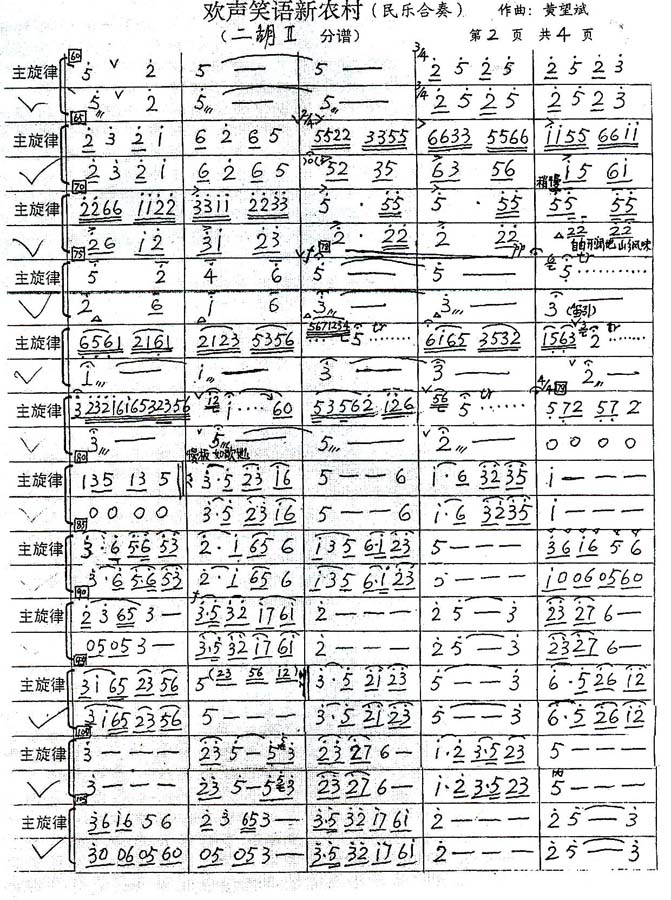 欢声笑语新农村（民乐合奏） 作曲：黄望斌
（二胡Ⅱ 分谱） 第2页 共4页
60
主旋律 5 ˅ 2 | 5 — | 5 — | 3/4 2 5 2 5 | 2 5 2 3
5 ˅ 2 | 5 — | 5 — | 3/4 2 5 2 5 | 2 5 2 3
65
主旋律 2 3 2 1 | 6 2 6 5 | 2/4 5522 3355 | 6633 5566 | 1155 6611
2 3 2 1 | 6 2 6 5 | 52 35 | 63 56 | 15 61
70 稍慢
主旋律 2266 1122 | 3311 2233 | 5 · 55 | 5 · 55 | 55 55
26 12 | 31 23 | 2 · 22 | 2 22 | 22 22
75
主旋律 5 2 | 4 6 | 5 — | 5 — | 5 tr
2 6 | 1 6 | 3 — | 3 — | 3
主旋律 6561 2161 | 2123 5356 | 5671234 5 tr | 6165 3532 | 1563 2 tr
1 — | 1 — | 3 — | 3 — | 2 —
4/4
主旋律 3 2321616532356 | 12 1 60 | 53562 126 | 56 5 tr | 572 57 2
3 — | 5 — | 5 — | 2 — | 0 0 0 0
80 慢板
主旋律 135 13 5 | 3·5 23 16 | 5 — — 6 | 1·6 3235 | 1 — — —
0 0 0 0 | 3·5 23 16 | 5 — — 6 | 1·6 3235 | 1 — — —
85
主旋律 3·6 56 53 | 2·1 65 6 | 135 6·123 | 5 — — — | 3616 5 6
3·6 56 53 | 2·1 65 6 | 135 6·123 | 5 — — — | 10060560
90
主旋律 2 3 65 3 — | 3·5 32 17 61 | 2 — — — | 2 5 — 3 | 23 27 6 —
05053 — | 3·5 32 17 61 | 2 — — — | 2 5 — 3 | 2327 6 —
主旋律 3165 23 56 | 5 (23 56 12) | 3·5 21 23 | 5 — — 3 | 6·5 26 12
3165 23 56 | 5 — — — | 3·5 21 23 | 5 — — 3 | 6·5 26 12
100
主旋律 3 — — — | 23 5 — 5 3 | 23 27 6 — | 1·2 3·5 23 | 5 — — —
3 — — — | 23 5 — 5 3 | 23 27 6 — | 1·2 3·5 23 | 5 — — —
105
主旋律 3616 5 6 | 2 3 65 3 — | 3·5 32 17 61 | 2 — — — | 2 5 — 3
30 06 05 60 | 05 053 — | 3·5 32 17 61 | 2 — — — | 2 5 — 3